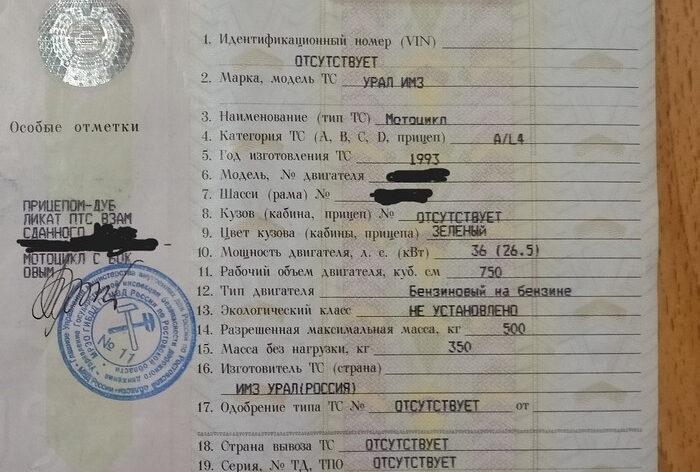 1. Идентификационный номер (VIN)
ОТСУТСТВУЕТ
2. Марка, модель ТС УРАЛ ИМЗ
3. Наименование (тип ТС) Мотоцикл
4. Категория ТС (А, В, С, D, прицеп) A/L4
5. Год изготовления ТС 1993
6. Модель, № двигателя
7. Шасси (рама) №
8. Кузов (кабина, прицеп) № ОТСУТСТВУЕТ
9. Цвет кузова (кабины, прицепа) ЗЕЛЕНЫЙ
10. Мощность двигателя, л. с. (кВт) 36 (26.5)
11. Рабочий объем двигателя, куб. см 750
12. Тип двигателя Бензиновый на бензине
13. Экологический класс НЕ УСТАНОВЛЕНО
14. Разрешенная максимальная масса, кг 500
15. Масса без нагрузки, кг 350
16. Изготовитель ТС (страна)
ИМЗ УРАЛ(РОССИЯ)
17. Одобрение типа ТС № ОТСУТСТВУЕТ от
18. Страна вывоза ТС ОТСУТСТВУЕТ
19. Серия, № ТД, ТПО ОТСУТСТВУЕТ
Особые отметки
ПРИЦЕПОМ-ДУБ
ЛИКАТ ПТС ВЗАМ
СДАННОГО
МОТОЦИКЛ С БОК
ОВЫМ
№ 11